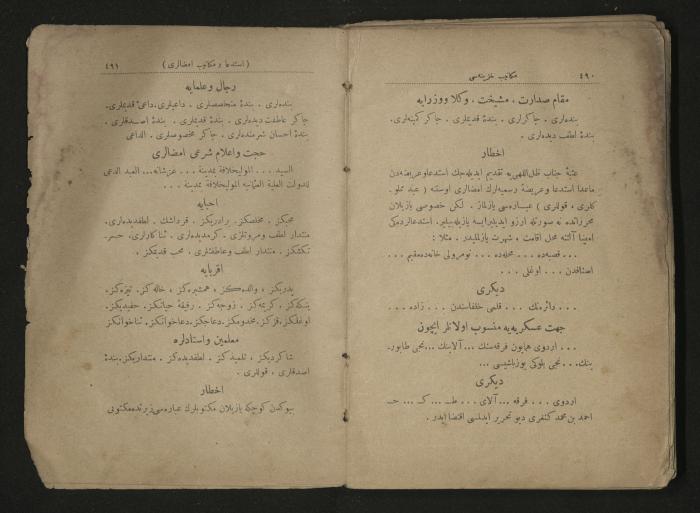 ٤٩٠ مكاتيب خزينه‌سى
مقام صدارت ، مشيخت ، وكلا و وزرايه
بنده‌لرى . چاكرلرى . بندۀ قديملرى . چاكر كمينه‌لرى .
بندۀ لطف ديده‌لرى .
اخطار
عتبۀ جناب ظل‌اللهى‌يه تقديم ايديله‌جك استدعا وعريضه‌دن
ماعدا استدعا وعريضۀ رسميه‌لرك امضالرى اوستنه ( عبد مملو .
كلرى ، قوللرى ) عباره‌سى يازلماز . لكن خصوصى يازيلان
محرراتده نه صورتله ارزو ايديليرايسه يازيله‌بيلير. استدعالرده‌كى
امضا آلتنه محل اقامت ، شهرت يازلمليدر . مثلا :
. . . قصبه‌ده . . . محله‌ده . . . نومرولى خانه‌ده‌مقيم . . .
اصنافدن . . . اوغلى . . .
ديكرى
. . . دائره‌نك . . . قلمى خلفاسندن . . . زاده . . .
جهت عسكريه‌يه منسوب اولانلر ايچون
. . . اردوى همايون فرقه‌سنك ... آلاينك ...نجى طابور.
ينك...نجى بلوكى يوزباشيسى ...
ديكرى
اردوى . . . فرقه ... آلاى . . . ط... ك ... ح‍
احمد بن محمد كنغرى ديو تحرير ايدلمسى اقتضا ايدر .
( استدعا و مكاتيب امضالرى ) ٤٩١
رجال وعلمايه
بنده‌لرى . بندۀ متخصصلرى . داعيلرى.داعئ قديملرى.
چاكر عاطفت ديده‌لرى . بندۀ قديملرى . بندۀ اصدقلرى .
بندۀ احسان شرمنده‌لرى . چاكر مخصوصلرى . الداعى
حجت واعلام شرعى امضالرى
السيد... الموليخلافة بمدينة . . . عزشانه... العبد الداعى
لدولت العلية العثمانيه الموليخلافة بمدينة . . .
احبايه
محبكز . مخلصكز. برادريكز. قرداشك . لطفديده‌لرى.
منتدار لطف ومروتلرى . كرمديده‌لرى . ثناكارلرى.
تكشكز . منتدار لطف وعاطفتلرى . محب قديمكز .
اقربايه
پدريكز . والده‌كز . همشيره‌كز . خاله كز. تيزه‌كز.
ينكه‌كز . كريمه‌كز . زوجه‌كز . رفيقۀ حياتكز. حفيديكز.
اوغلكز.قزكز.مخدومكز.دعاجكز.دعاخوانكز.ثناخوانكز
معلمين واستادلره
شاكرديكز . تلميذكز . لطفديده‌كز . منتداريكز.بندۀ
اصدقلرى . قوللرى .
اخطار
بيوكدن كوچكه يازيلان مكتوبلرك عباره‌سى زيرنده‌مكتوبى